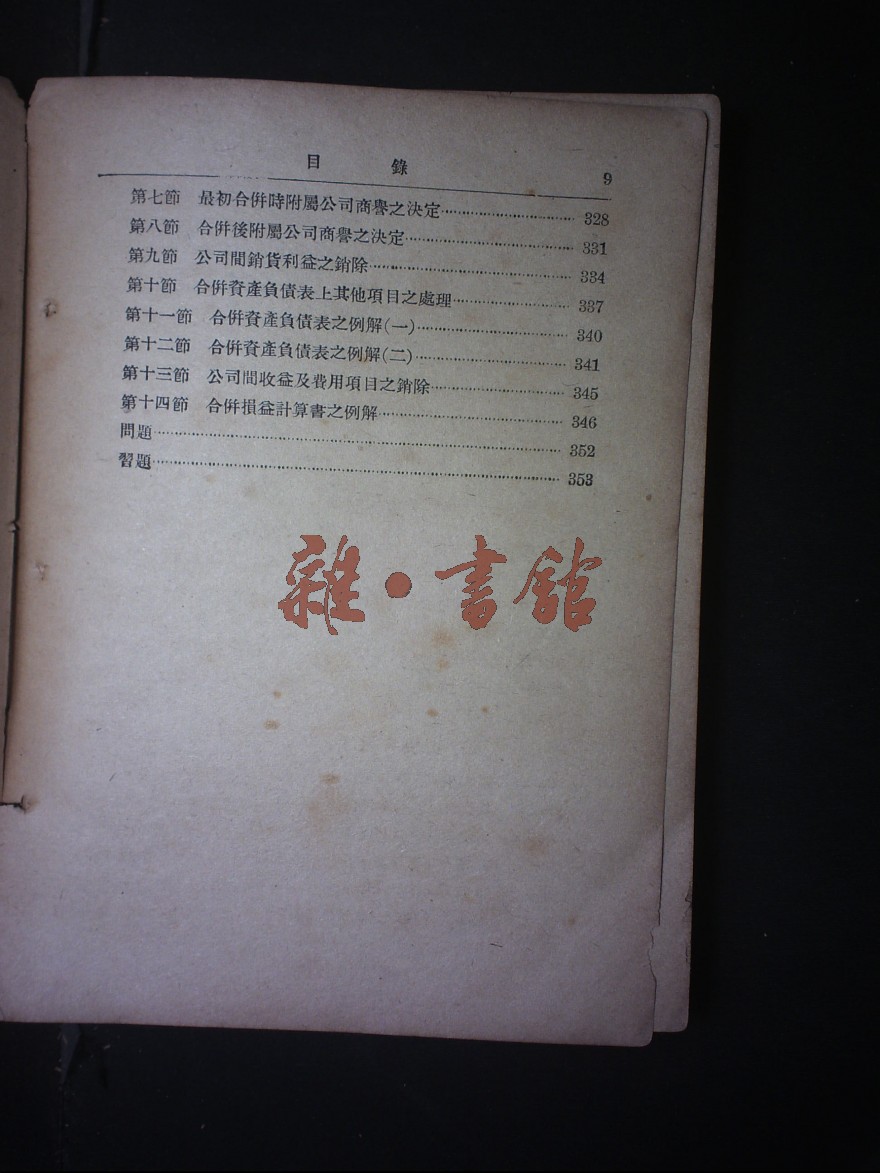 目 錄 9
第七節 最初合併時附屬公司商譽之決定 328
第八節 合併後附屬公司商譽之決定 331
第九節 公司間銷貨利益之銷除 334
第十節 合併資產負債表上其他項目之處理 337
第十一節 合併資產負債表之例解(一) 340
第十二節 合併資產負債表之例解(二) 341
第十三節 公司間收益及費用項目之銷除 345
第十四節 合併損益計算書之例解 346
問題 352
習題 353
雜·書館